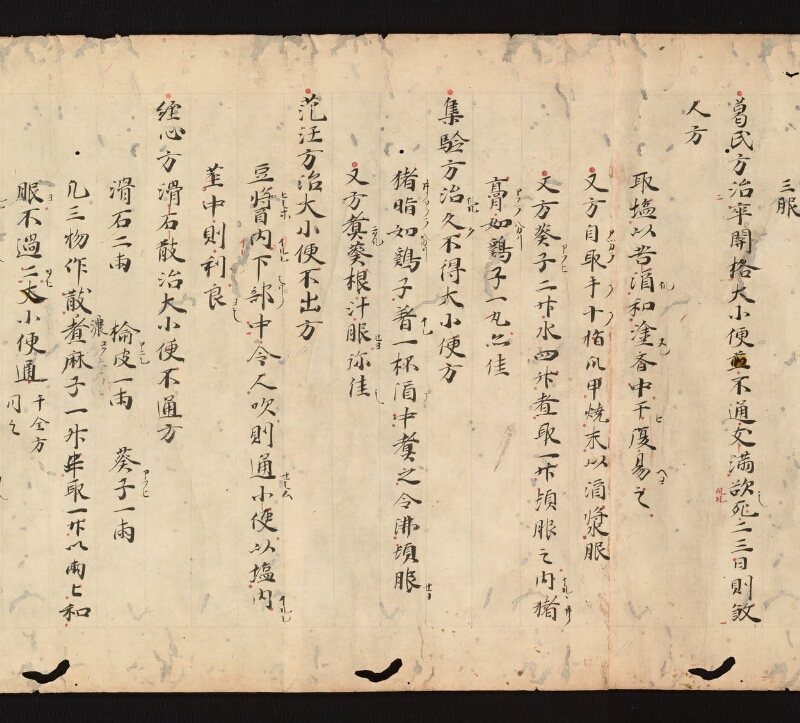 三服
葛氏方治卒開格大小便並不通支満欲死二三日則敓
人方
取塩以苦酒和塗斉中干復易之
又方自取手十指爪甲焼末以酒漿服
又方葵子二升水四升煮取一升頓服之内猪
膏如鶏子一丸亦佳
集驗方治久不得大小便方
猪脂如鶏子者一杯酒中煮之令沸頓服
又方煮葵根汁服弥佳
范汪方治大小便不出方
豆醤内下部中令人吹則通小便以塩内
莖中則利良
経心方滑石散治大小便不通方
滑石二両 楡皮一両 葵子一両
凡三物作散煮麻子一升半取一升以両匕和
濃
服不過二大小便通 千金方
同之